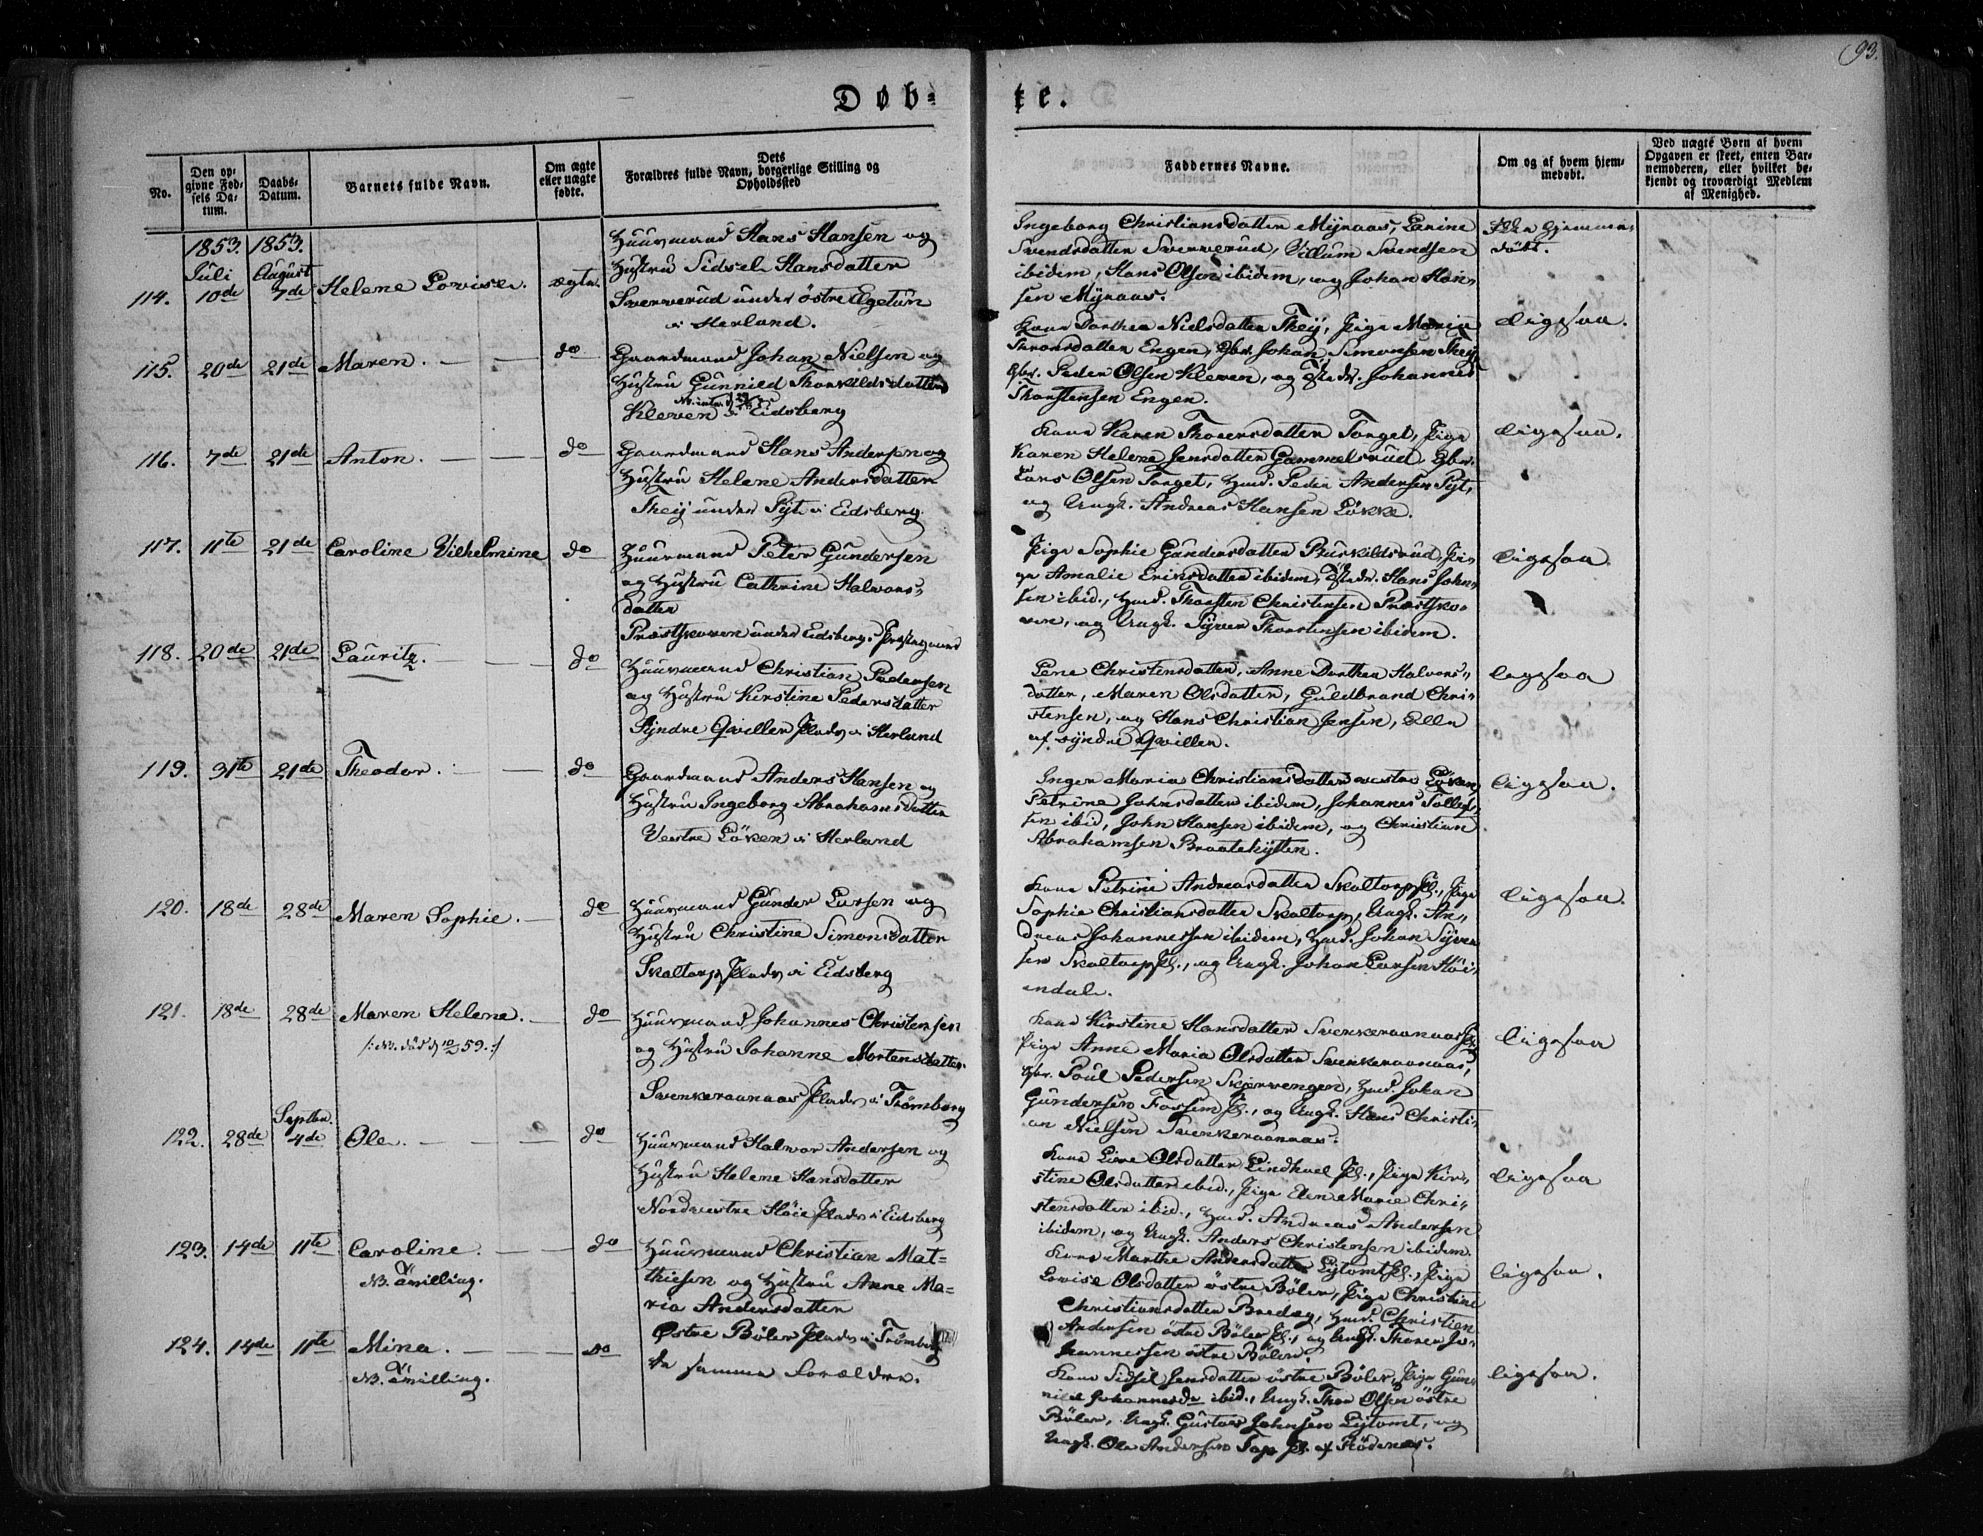 93.
Døb-
te.
No.
Den op-
givne Fød-
sels Da-
tum.
Daabs-
Datum.
Barnets fulde Navn.
Om ægte
eller uægte
fødte.
Dets
Forældres fulde Navn, borgerlige Stilling og
Opholdssted
Faddernes Navne.
Om og af hvem hjem-
medøbt.
Ved uægte Børn af hvem
Opgaven er skeet, enten Bar-
nemoderen, eller hvilket be-
kjendt og troværdigt Medlem
af Menighed.
1853. 1853.
Juli August
114. 10de 7de Helene Lovise. ægte.
Huusmand Hans Hansen og
Hustru Sidsel Hansdatter
Sververud under østre Egetün
i Herland.
Ingeborg Christiansdatter Mÿraas, Karine
Svendsdatter Sververud, Villum Svendsen
ibidem, Hans Olsen ibidem, og Johan Han-
sen Mÿraas.
Ikke hjemme-
døbt.
115. 20de 21de Maren. do
Gaardmand Johan Nielsen og
Hustru Gunnild Thorkildsdatter
Kleven i Eidsberg
Kone Dorthea Nielsdatter Theÿ, Pige Maria
Thronsdatter Engen, Gbr. Johan Simonsen Theÿ,
Gbr. Peder Olsen Kleven, og Johannes
Thorstensen Engen.
Ligesaa.
116. 7de 21de Anton. do
Gaardmand Hans Andersen og
Hustru Helene Andersdatter
Theÿ under Sÿt i Eidsberg.
Kone Karen Thoversdatter Torget, Pige
Karen Helene Jensdatter Gammelsrud, Gbr.
Lars Olsen Torget, Hmd. Peder Andersen Sÿt,
og Ungk. Andreas Hansen Løkke.
Ligesaa.
117. 11te 21de Caroline Vilhelmine do
Huusmand Peter Gundersen
og Hustru Cathrine Halvors-
datter
Præstskoven under Eidsberg. Præstegaard
Pige Sophie Gundersdatter Buskildsrud, Pi-
ge Amalie Ericsdatter ibidem, Hans John-
sen ibid., Hmd. Thorsten Christensen Præstsko-
ven, og Ungk. Sÿver Thorstensen ibidem.
ligesaa
118. 20de 21de Lauritz. do
Huusmand Christian Pedersen
og Hustru Kirstine Pedersdatter
Sÿndre Qviller Plads i Herland
Lene Christensdatter, Anne Dorthea Halvors-
datter, Maren Olsdatter, Guldbrand Chri-
stensen, og Hans Christian Jensen, Alle
af sÿndre Qviller.
ligesaa
119. 31te 21de Theodor. do
Gaardmand Anders Hansen og
Hustru Ingeborg Abrahamsdatter
Vestre Løken i Herland
Inger Maria Christiansdatter vestre Løken,
Petrine Johnsdatter ibidem, Johannes Tollef-
sen ibid, John Hansen ibidem, og Christian
Abrahamsen Braatehÿtten.
ligesaa.
120. 18de 28de Maren Sophie. do
Huusmand Gunder Larsen og
Hustru Christine Simonsdatter
Skaltorp Plads i Eidsberg
Kone Petrine Andreasdatter Skaltorp Pl., Pige
Sophie Christiansdatter Skaltorp, Ungk. An-
dreas Johannessen ibidem, Hmd. Johan Sÿver-
sen Skaltorp Pl., og Ungk. Johan Larsen Høi-
endal.
ligesaa.
121. 18de 28de Maren Helene. do
Huusmand Johannes Christensen
og Hustru Johanne Mortensdatter.
Svenkeraanaas Plads i Trømborg
Kone Kirstine Hansdatter Svenkeraanaas Pl.,
Pige Anne Maria Olsdatter Svenkeraanaas,
Gbr. Poul Pedersen Skjervengen, Hmd. Johan
Gundersen Fossem Pl., og Ungk. Hans Christi-
an Nielsen Svenkeraanaas.
ligesaa
Septbr.
122. 28de 4de Ole. do
Huusmand Halvor Andersen og
Hustru Helene Hansdatter
Nordvestre Høie Plads i Eidsberg
Kone Live Olsdatter Lindhoel Pl., Pige Kir-
stine Olsdatter ibid., Pige Elen Marie Chri-
stensdatter ibid., Hmd. Andreas Andersen
ibidem, og Ungk. Anders Christensen ibidem.
ligesaa
123. 14de 11te Caroline. do
NB. Tvilling.
Huusmand Christian Mat-
thiesen og Hustru Anne Ma-
ria Andersdatter
Østre Böler Plads i Trømborg
Kone Marthe Andersdatter Lÿtomt Pl., Pige
Lovise Olsdatter østre Böler, Pige Christine
Christiansdatter Bredag, Hmd. Christian
Andersen østre Böler Pl., og Ungk. Thorer Jo-
hannessen østre Böler.
ligesaa.
124. 14de 11te Mina. do
NB. Tvilling.
De samme Forældre.
Kone Sidsel Jensdatter østre Böler, Pige Gun-
nild Johannesdr ibid., Ungk. Thor Olsen östre
Böler, Ungk. Gustav Johnsen Lÿtomt, og
Ungk. Ole Andersen Tap Pl. af Rödenæs.
ligesaa.